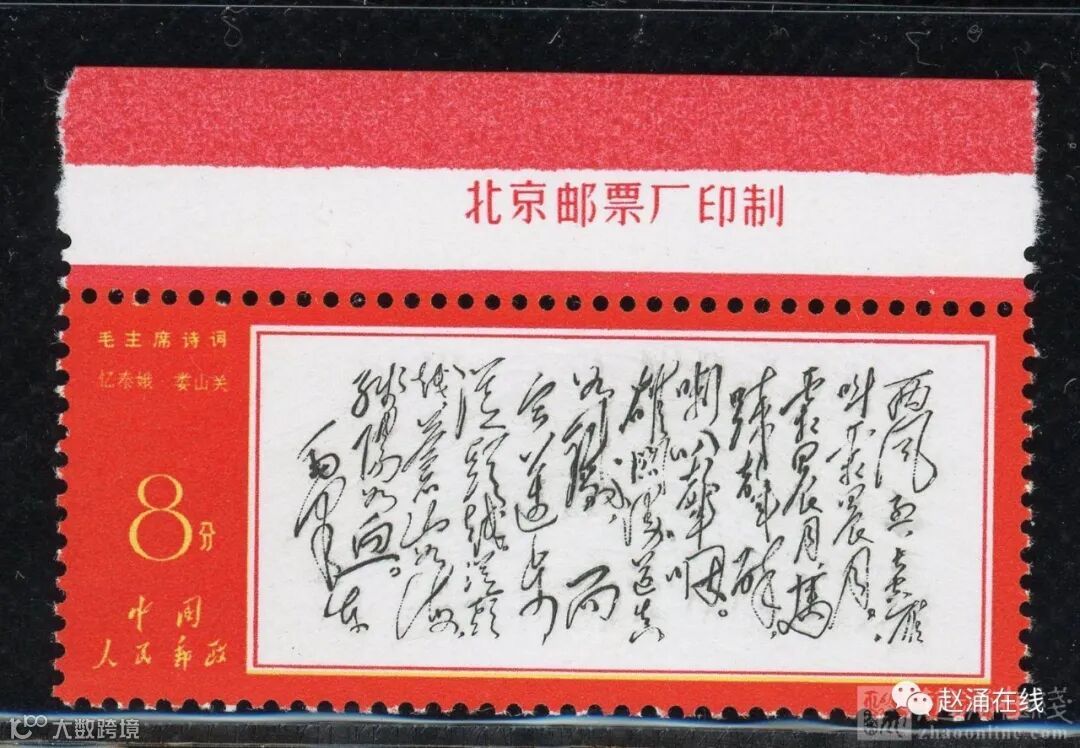 北京邮票厂印制
毛主席诗词
忆秦娥 娄山关
8分
中国
人民郵政
西风烈 长空雁
叫霜晨月。
霜晨月,马
蹄声碎,
喇叭声咽。
雄关漫道真
如铁,而
今迈步
从头越。从头
越,苍山如海,
残阳如血。
毛泽东
赵涌在线
zhaoonline.com
大数跨境